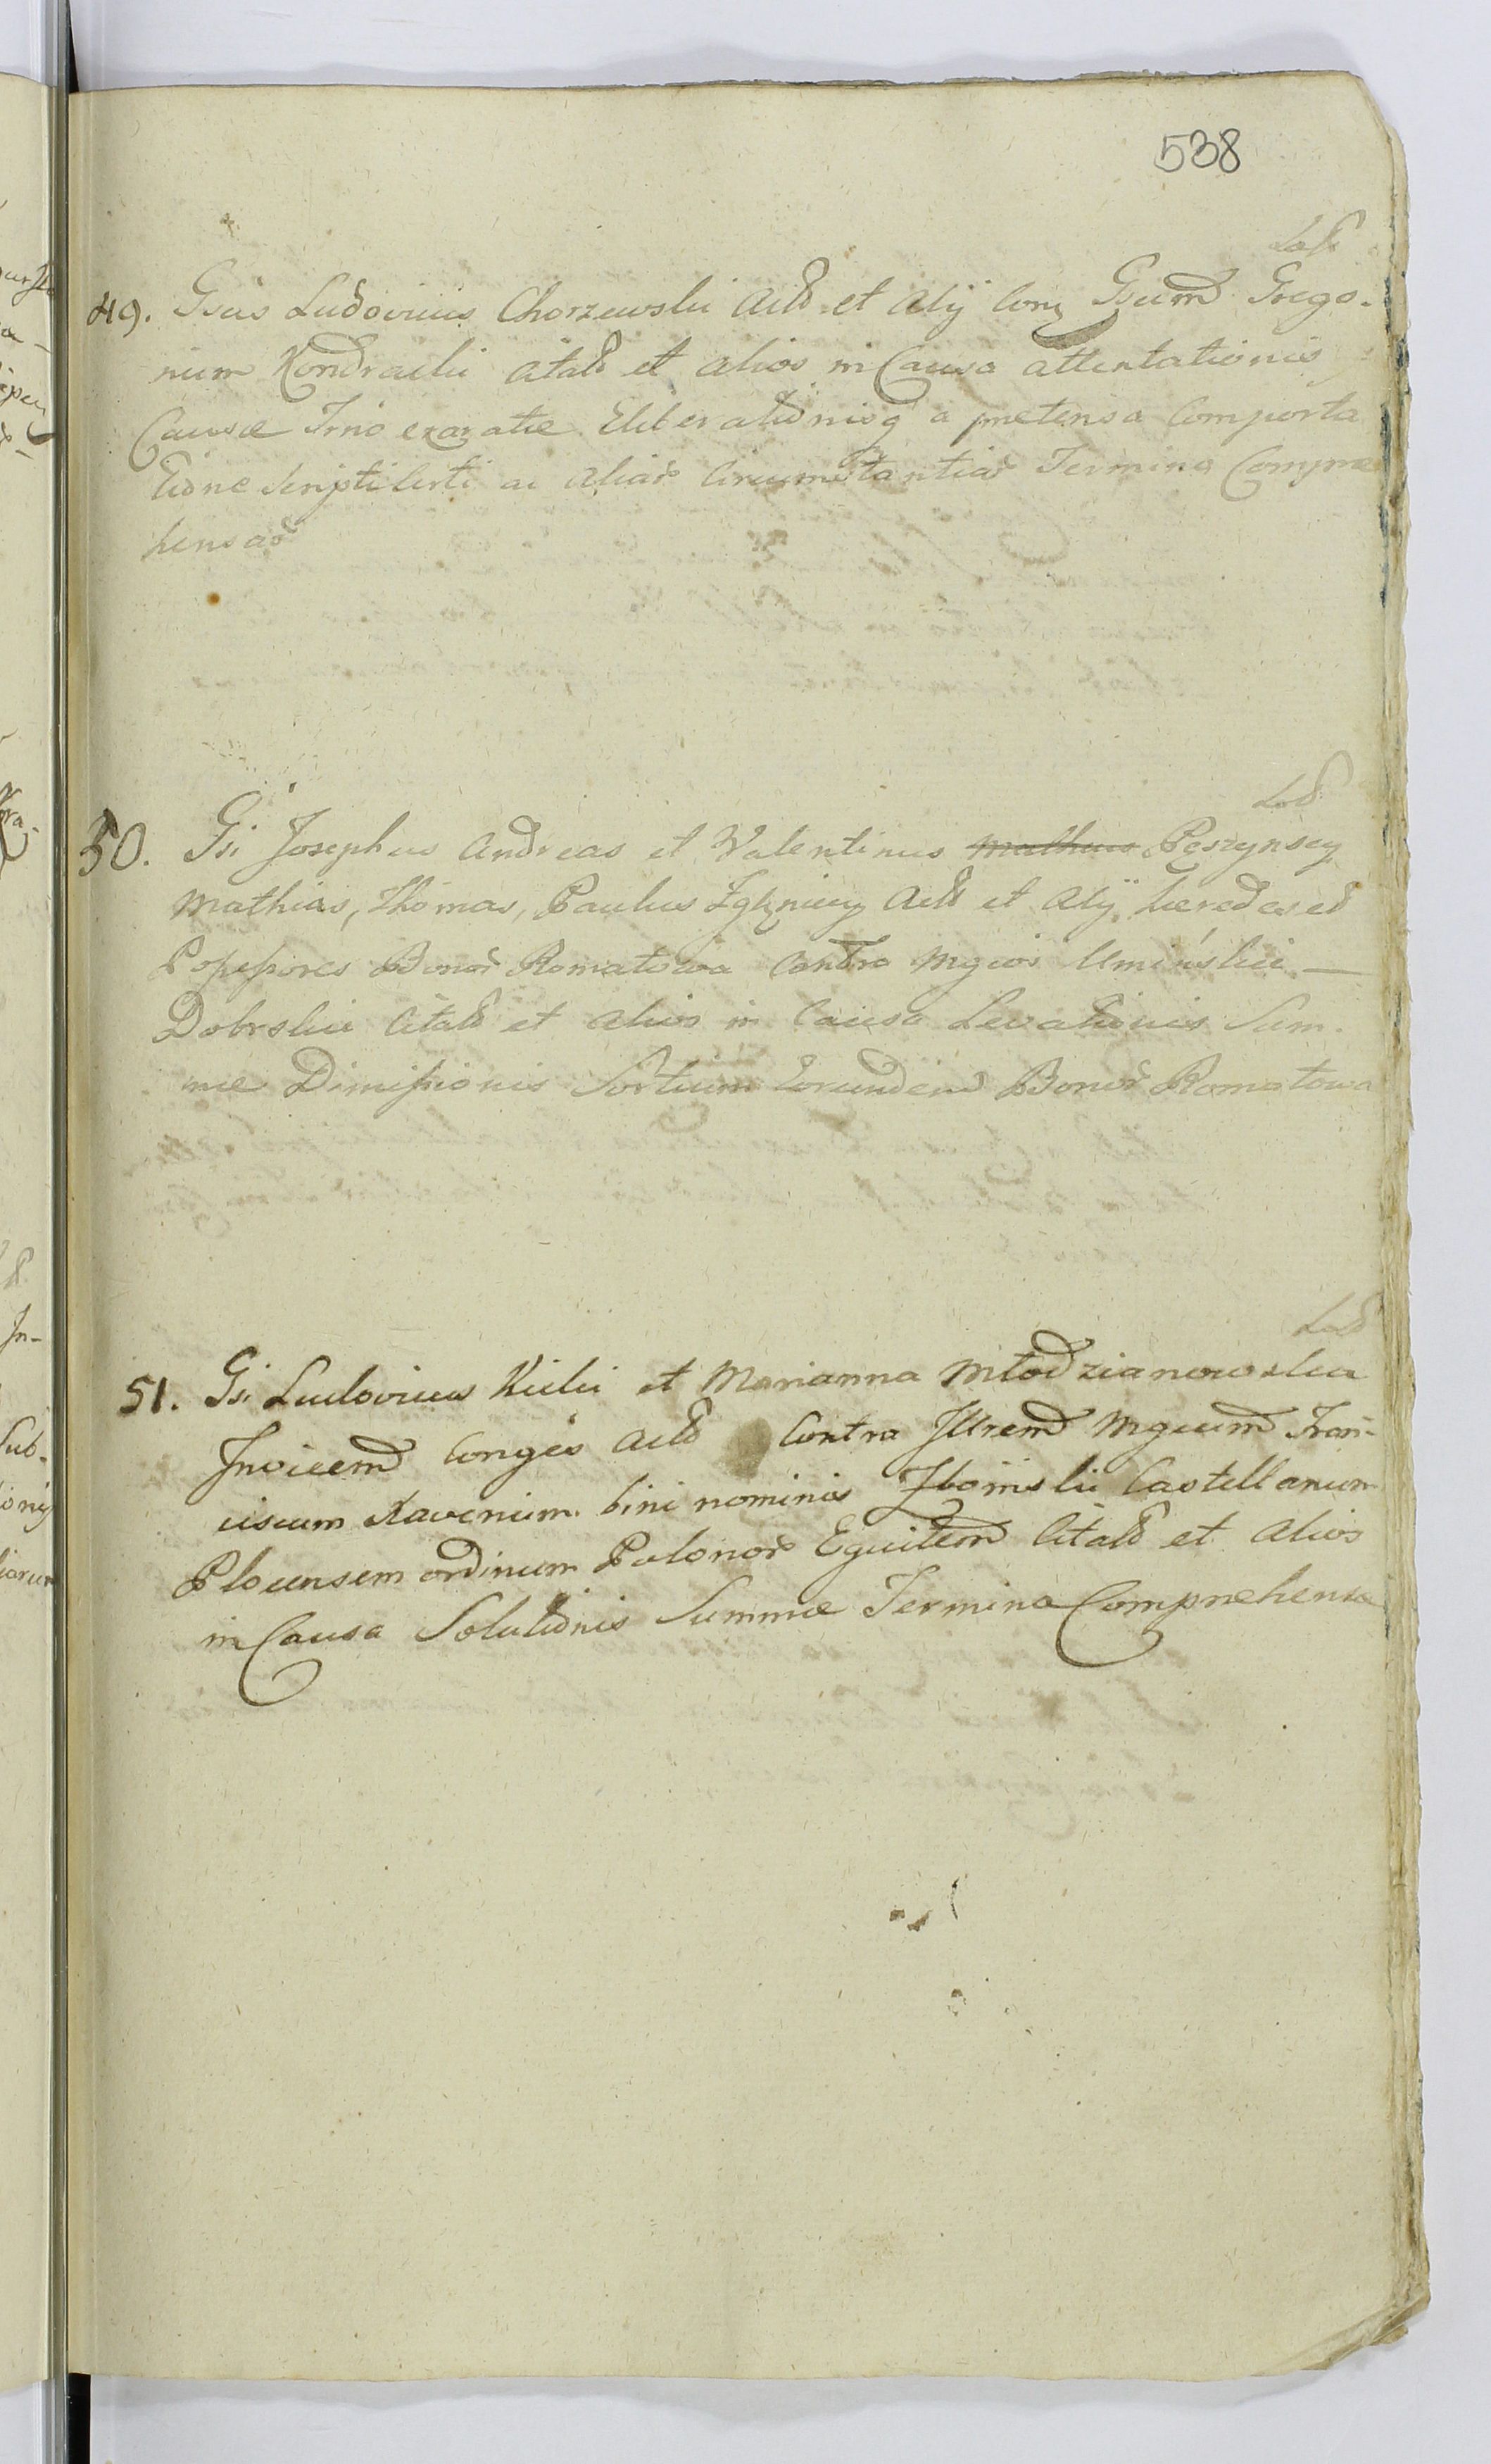 538
49. Gsus Ludovicus Chorzewski Actb et Alij Conz Gsum Grego-
rium Kondracki Citatb et alios in Causa attentationis
Causæ Trno exaratæ Eliberationisq a prætensa Comporta
tione Scripti Certi ac aliar Circumstantiar Termino Compræ
hensar
50. Gsi Josephus Andreas et Valentinus Mathias Pęszynscy
Mathias, Thomas, Paulus Actb et Alij hæredes et
Possessores Bonor Romatowa Contra Mgcos Uminskii —
Dobrskii Citatb et alios in Causa Levationis Sum-
mæ Dimissionis Sortium Eorundem Bonor Romatowa
51. Gsi Ludovicus Kicki et Marianna Młodzianowska
Invicem Conges Actb Contra Illrem Mgcum Fran-
ciscum Xaverium bini nominis Zboinski Castellanum
Plocensem ordinum Polonor Equitem Citatb et alios
in Causa Solutionis Summæ Termino Comprehensæ